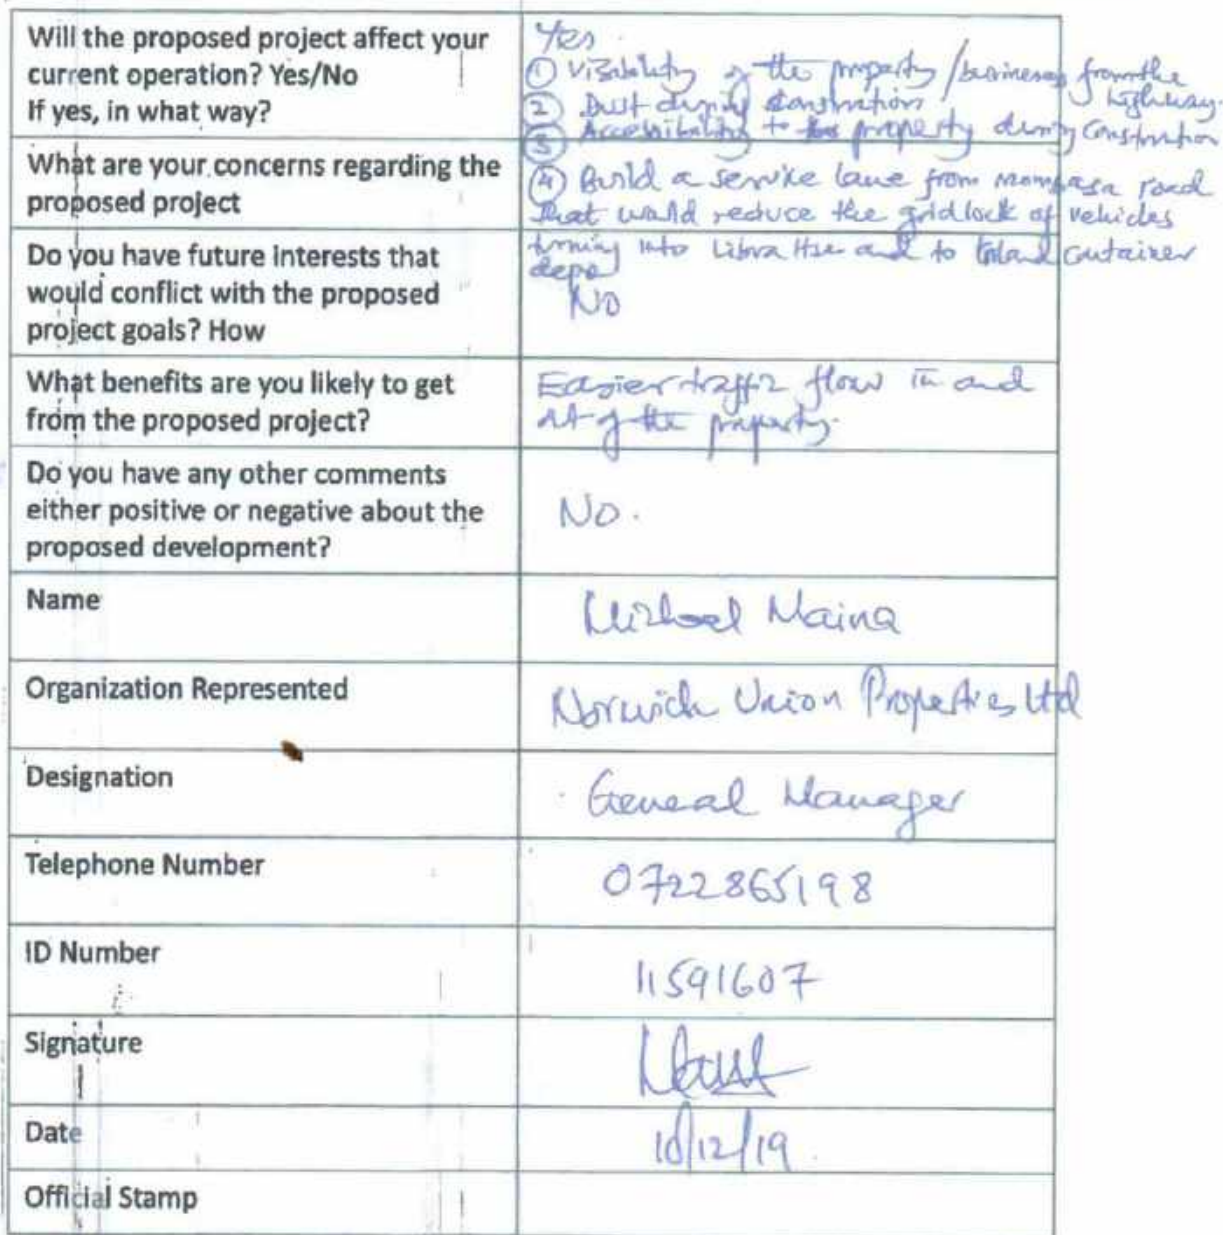 Will the proposed project affect your
current operation? Yes/No
If yes, in what way?
Yes.
① Visability of the property / business from the
highway.
② Dust during construction
③ Accessibility to the property during construction
What are your concerns regarding the
proposed project
④ Build a service lane from mombasa road
that would reduce the gridlock of vehicles
turning into Libra Hse and to Inland Container
depo
Do you have future interests that
would conflict with the proposed
project goals? How
NO
What benefits are you likely to get
from the proposed project?
Easier traffic flow in and
out of the property.
Do you have any other comments
either positive or negative about the
proposed development?
NO.
Name
Michael Maina
Organization Represented
Norwich Union Properties Ltd
Designation
General Manager
Telephone Number
0722865198
ID Number
11591607
Signature
Date
10/12/19
Official Stamp